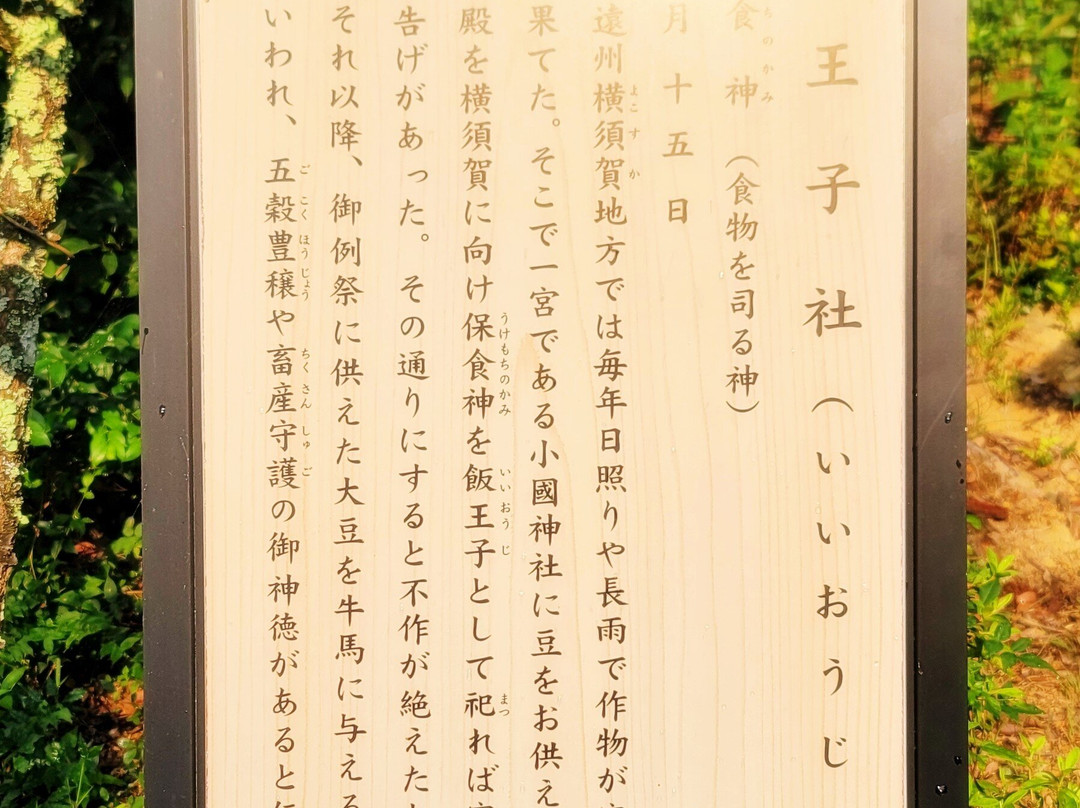 王子社（いいおうじ
食神（食物を司る神）
月十五日
遠州横須賀地方では毎年日照りや長雨で作物が
果てた。そこで一宮である小國神社に豆をお供え
殿を横須賀に向け保食神を飯王子として祀れば
告げがあった。その通りにすると不作が絶えた
それ以降、御例祭に供えた大豆を牛馬に与える
いわれ、五穀豊穣や畜産守護の御神徳があると